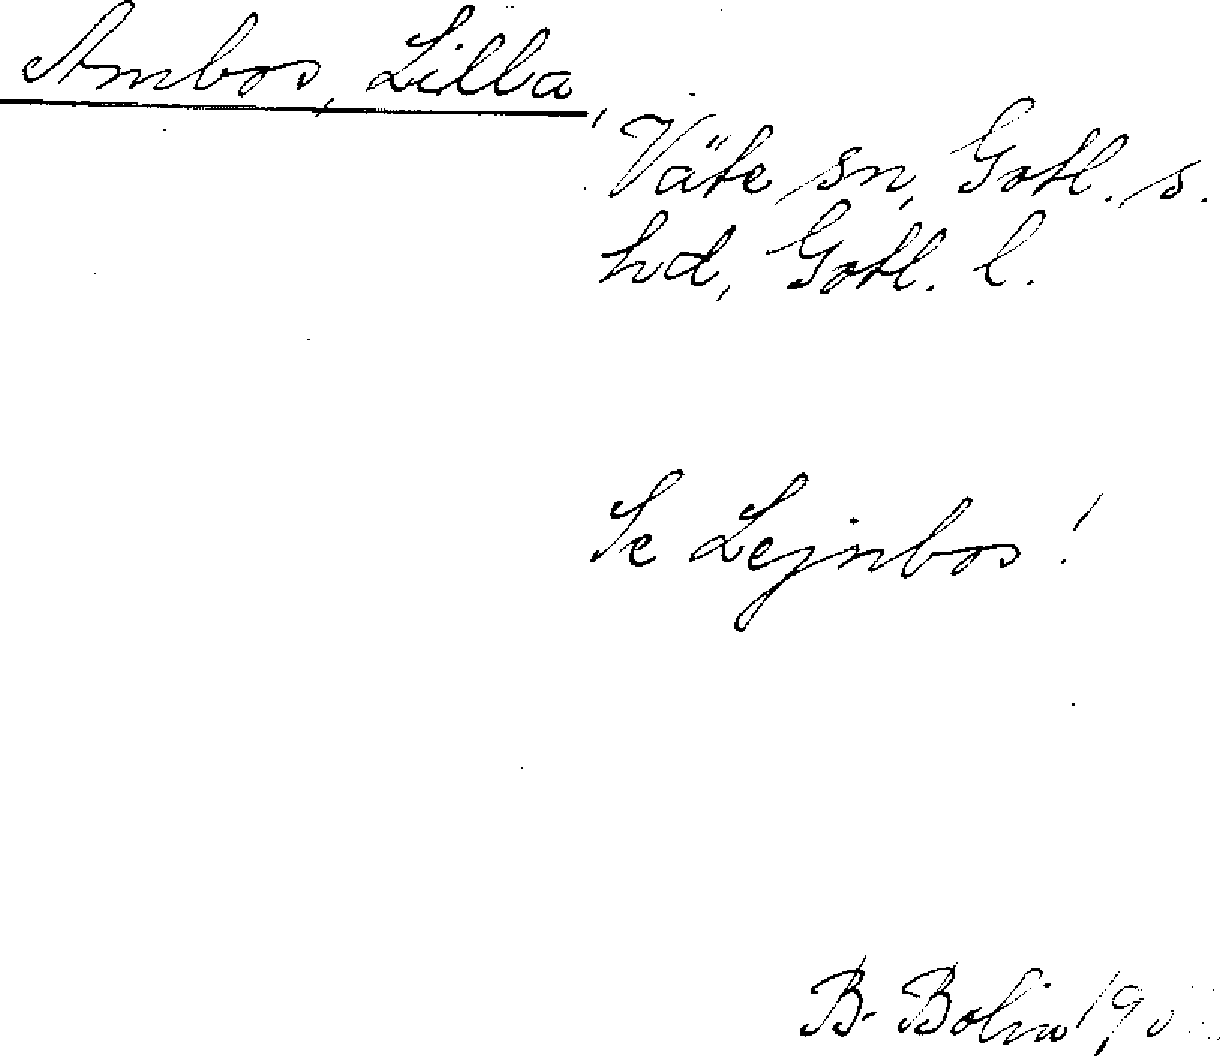 Ambos, Lilla,
Väte sn, Gotl. s.
hd, Gotl. l.
Se Lejnbos!
B. Bolin